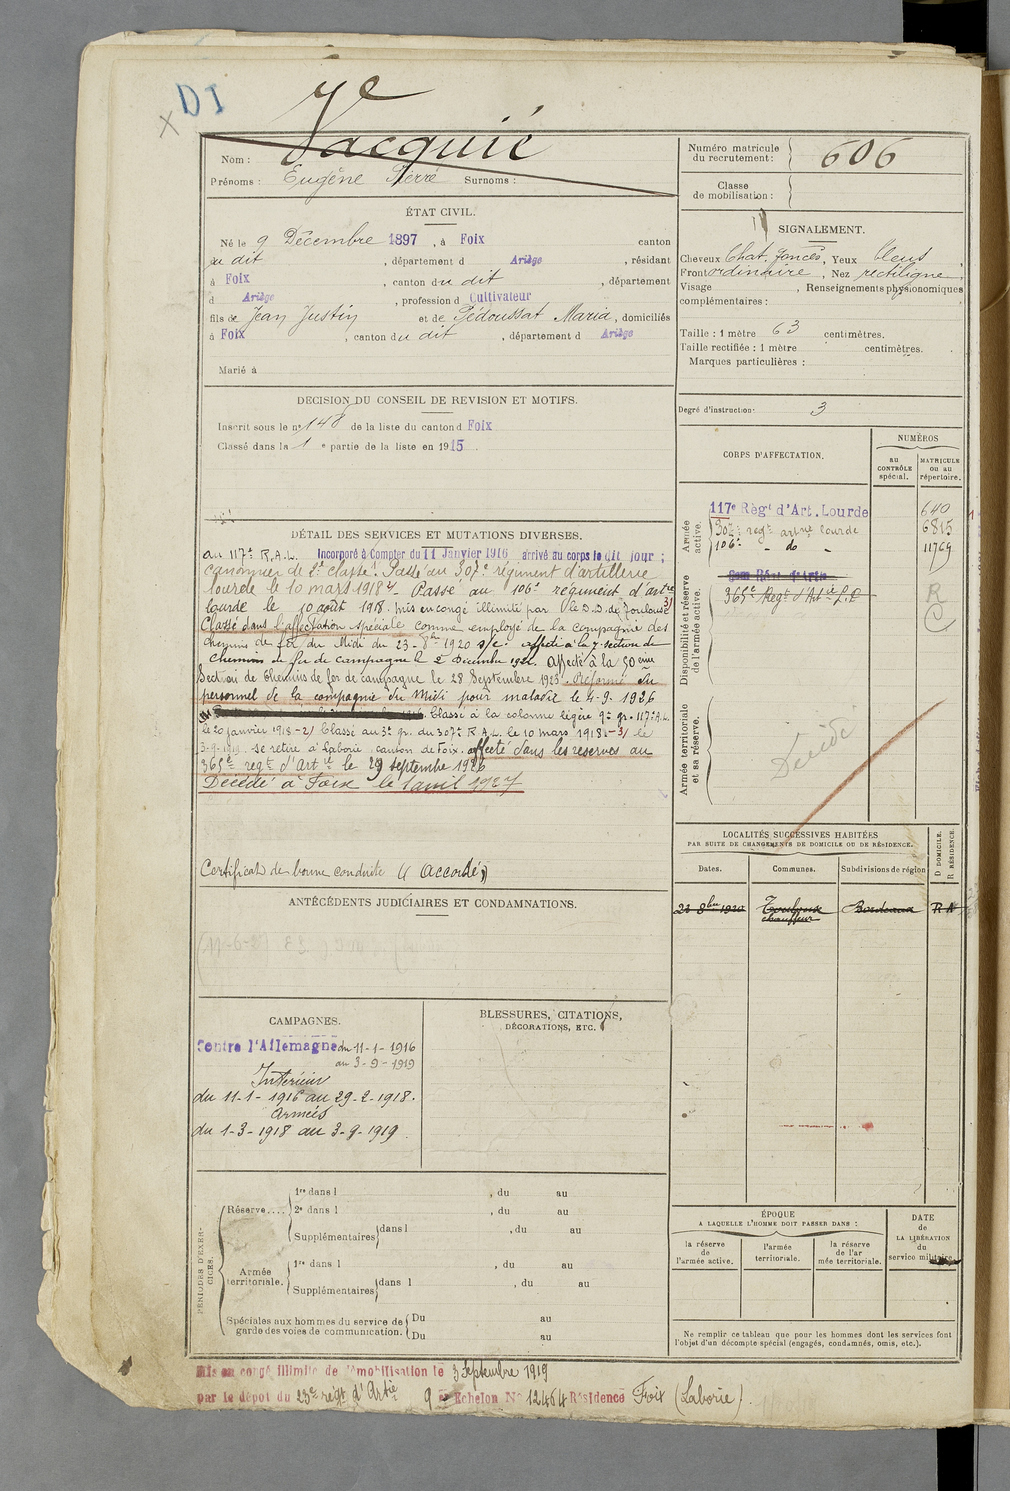 DI
7e
X
Vacquié
Nom :
Prénoms : Eugène Pierre Surnoms :
Numéro matricule
du recrutement : 606
Classe
de mobilisation :
ÉTAT CIVIL.
Né le 9 Décembre 1897, à Foix canton
du dit, département d Ariège, résidant
à Foix, canton du dit, département
d Ariège, profession d Cultivateur
fils de Jean Justin et de Pédoussat Maria, domiciliés
à Foix, canton du dit, département d Ariège
Marié à
SIGNALEMENT.
Cheveux Chat. foncés, Yeux bleus,
Front ordinaire, Nez rectiligne
Visage , Renseignements physionomiques
complémentaires :
Taille : 1 mètre 63 centimètres.
Taille rectifiée : 1 mètre centimètres.
Marques particulières :
DECISION DU CONSEIL DE REVISION ET MOTIFS.
Inscrit sous le n° 148 de la liste du canton d Foix
Classé dans la 1e partie de la liste en 1915
Degré d'instruction : 3
DÉTAIL DES SERVICES ET MUTATIONS DIVERSES.
au 117e R.A.L. Incorporé à Compter du 11 Janvier 1916 arrivé au corps le dit jour ;
canonnier de 2e classe. Passé au 307e régiment d'artillerie
lourde le 10 mars 1918. Passé au 106e régiment d'artie
lourde le 10 août 1918. mis en congé illimité par le D.D. de Toulouse
Classé dans l'affectation spéciale comme employé de la compagnie des
chemins de fer du Midi du 23-8bre 1920 affecté à la 7e section de
Chemins de fer de campagne le 2 Décembre 1921. Affecté à la 50eme
Section de chemins de fer de campagne le 28 Septembre 1925. Réformé du
personnel de la compagnie du Midi pour maladie le 4-9-1926
Classé à la colonne légère 9e gr. 117e A.L.
le 20 janvier 1918 - 2/ Classé au 3e gr. du 307e R.A.L. le 10 mars 1918 - 3/ le
3-9-1919 se retire à Laborie canton de Foix. affecté dans les réserves au
365e regt d'Art le 29 septembre 1926
Décédé à Foix le 1 avril 1927
Certificat de bonne conduite "Accordé"
CORPS D'AFFECTATION.
NUMÉROS
au
CONTRÔLE
spécial.
MATRICULE
ou au
répertoire.
Armée
active.
117e Règt d'Art. Lourde 640
307e regt artie lourde 6815
106e - do - 11769
Disponibilité et réserve
de l'armée active.
365e Regt d'Artie R
C
Armée territoriale
et sa réserve.
Décédé
LOCALITÉS SUCCESSIVES HABITÉES
PAR SUITE DE CHANGEMENTS DE DOMICILE OU DE RÉSIDENCE.
D DOMICILE.
R RÉSIDENCE.
Dates.
Communes.
Subdivisions de région
23 8bre 1920 Toulouse Bordeaux R
chauffeur
ANTÉCÉDENTS JUDICIAIRES ET CONDAMNATIONS.
CAMPAGNES.
Contre l'Allemagne du 11-1-1916
au 3-9-1919
Intérieur
du 11-1-1916 au 29-2-1918.
Armées
du 1-3-1918 au 3-9-1919.
BLESSURES, CITATIONS,
DÉCORATIONS, ETC.
PÉRIODES D'EXERCICES.
Réserve....
1re dans l , du au
2e dans l , du au
Supplémentaires dans l , du au
Armée
territoriale.
1re dans l , du au
Supplémentaires dans l , du au
Spéciales aux hommes du service de
garde des voies de communication.
Du au
Du au
ÉPOQUE
A LAQUELLE L'HOMME DOIT PASSER DANS :
la réserve
de
l'armée active.
l'armée
territoriale.
la réserve
de l'ar
mée territoriale.
DATE
de
LA LIBÉRATION
du
service militaire.
Ne remplir ce tableau que pour les hommes dont les services font
l'objet d'un décompte spécial (engagés, condamnés, omis, etc.).
Mis en congé illimité de démobilisation le 3 Septembre 1919
par le dépôt du 23e regt d'Artie 9e Echelon No 12464 Résidence Foix (Laborie).